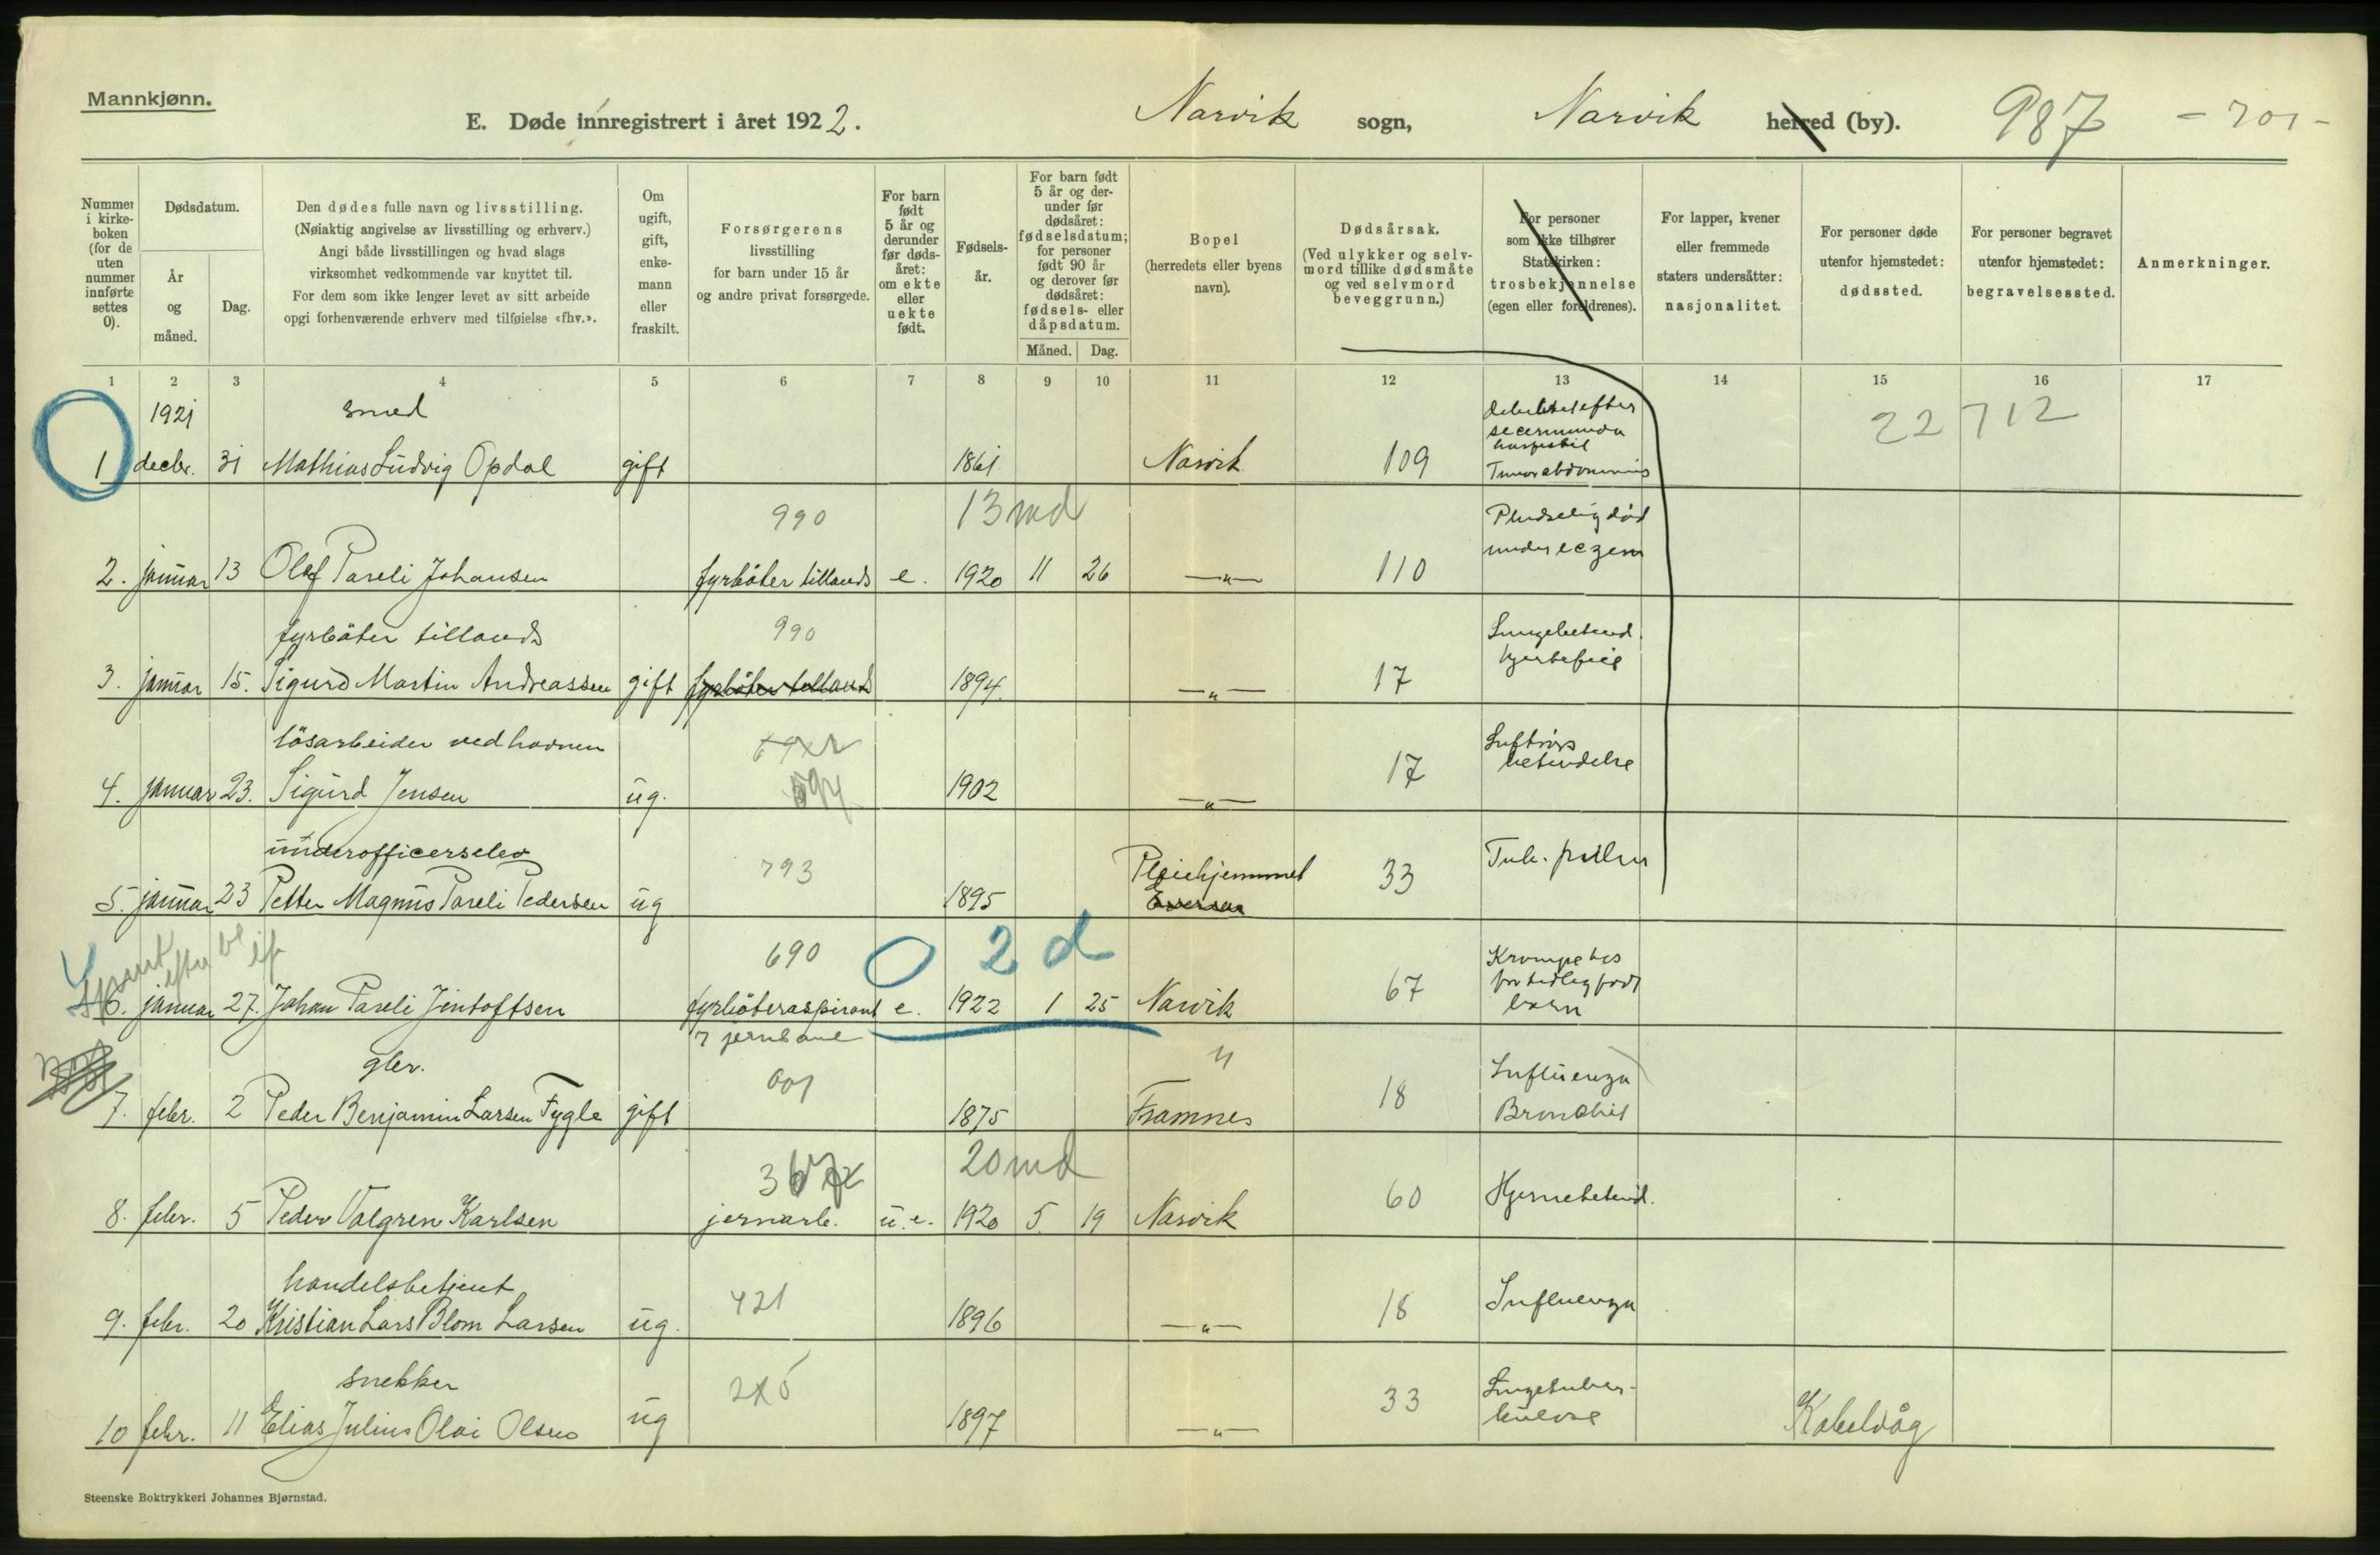 Mannkjønn.
E. Døde innregistrert i året 1922. Narvik sogn, Narvik herred (by). 987 - 701 -
Nummer i kirke-boken (for de uten nummer innførte settes 0).
Dødsdatum.
År og måned.
Dag.
Den dødes fulle navn og livsstilling.
(Nøiaktig angivelse av livsstilling og erhverv.)
Angi både livsstillingen og hvad slags
virksomhet vedkommende var knyttet til.
For dem som ikke lenger levet av sitt arbeide
opgi forhenværende erhverv med tilføielse «fhv.».
Om ugift, gift, enke-mann eller fraskilt.
Forsørgerens
livsstilling
for barn under 15 år
og andre privat forsørgede.
For barn født 5 år og derunder før døds-året: om ekte eller uekte født.
Fødsels-år.
For barn født 5 år og der-under før dødsåret: fødselsdatum; for personer født 90 år og derover før dødsåret: fødsels- eller dåpsdatum.
Måned. Dag.
Bopel
(herredets eller byens navn).
Dødsårsak.
(Ved ulykker og selv-mord tillike dødsmåte og ved selvmord beveggrunn.)
For personer
som ikke tilhører
Statskirken:
trosbekjennelse
(egen eller foreldrenes).
For lapper, kvener
eller fremmede
staters undersåtter:
nasjonalitet.
For personer døde
utenfor hjemstedet:
dødssted.
For personer begravet
utenfor hjemstedet:
begravelsessted.
Anmerkninger.
1 2 3 4 5 6 7 8 9 10 11 12 13 14 15 16 17
1921 smed 22712
1 decbr. 31 Mathias Ludvig Opdal gift 1861 Narvik 109
Tumor abdominis
990 13 md Pludselig død
2. januar 13 Olaf Pareli Johansen fyrbøter tillands e. 1920 11 26 —"— 110 under eczem
fyrbøter tillands 990 Lungebetænd.
3. januar 15. Sigurd Martin Andreassen gift fyrbøter tillands 1894. —"— 17 hjertefeil
løsarbeider ved havnen Luftrørs
4. januar 23. Sigurd Jensen ug. 1902 —"— 17 betændelse
underofficerselev 793 Pleiehjemmet Tub. pulm
5. januar 23 Petter Magnus Pareli Pedersen ug 1895 33
690 2 d Krampe hos
6. januar 27. Johan Pareli Jentoftsen fyrbøteraspirant e. 1922 1 25 Narvik 67 for tidlig født
barn
7 jernbane
gbr. 601 " Influenza
7. febr. 2 Peder Benjamin Larsen Fygle gift 1875 Framnes 18 Bronchit
20 md
8. febr. 5 Peder Valgren Karlsen jernarb. u.e. 1920 5. 19 Narvik 60 Hjernebetænd.
handelsbetjent 421
9. febr. 20 Kristian Lars Blom Larsen ug. 1896 —"— 18 Influenza
snekker Lungetuber-
10 febr. 11 Elias Julius Olai Olsen ug 1897 —"— 33 kulose Kabelvåg
Steenske Boktrykkeri Johannes Bjørnstad.